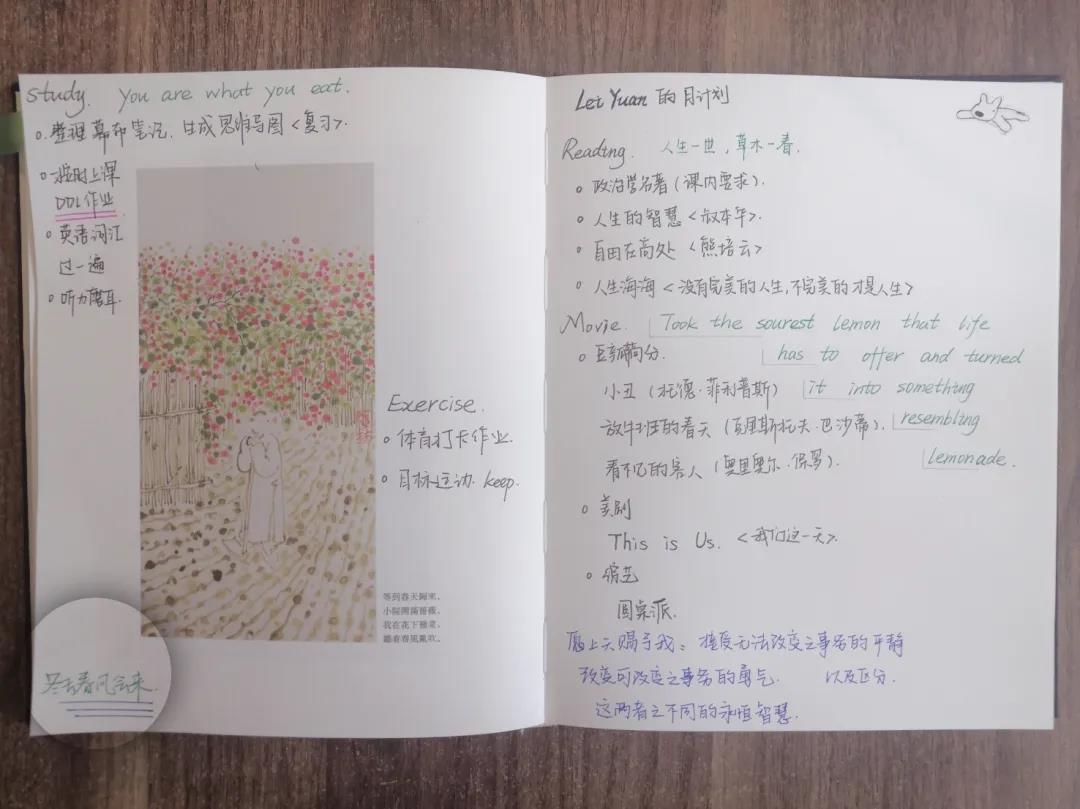 Study. You are what you eat.
整理幕布笔记, 生成思维导图<复习>.
按时上课
DDL作业
英语词汇
过一遍
听力磨耳.
Exercise.
体育打卡作业.
目标运动. keep.
等到春天歸來,
小院開滿薔薇,
我在花下
聽着春風亂吹。
冬去春风会来.
Lei Yuan 的月计划
Reading. 人生一世, 草木一春.
政治学名著(课内要求).
人生的智慧<叔本华>.
自由在高处<熊培云>
人生海海<没有完美的人生,不完美的才是人生>
Movie. Took the sourest lemon that life
豆瓣高分. has to offer and turned
小丑 (托德·菲利普斯) it into something
放牛班的春天 (克里斯托夫·巴沙蒂). resembling
看不见的客人 (奥里奥尔·保罗). lemonade.
美剧
This is Us. <我们这一天>.
综艺
圆桌派.
愿上天赐予我: 接受无法改变之事务的平静
改变可改变之事务的勇气. 以及区分.
这两者之不同的永恒智慧.